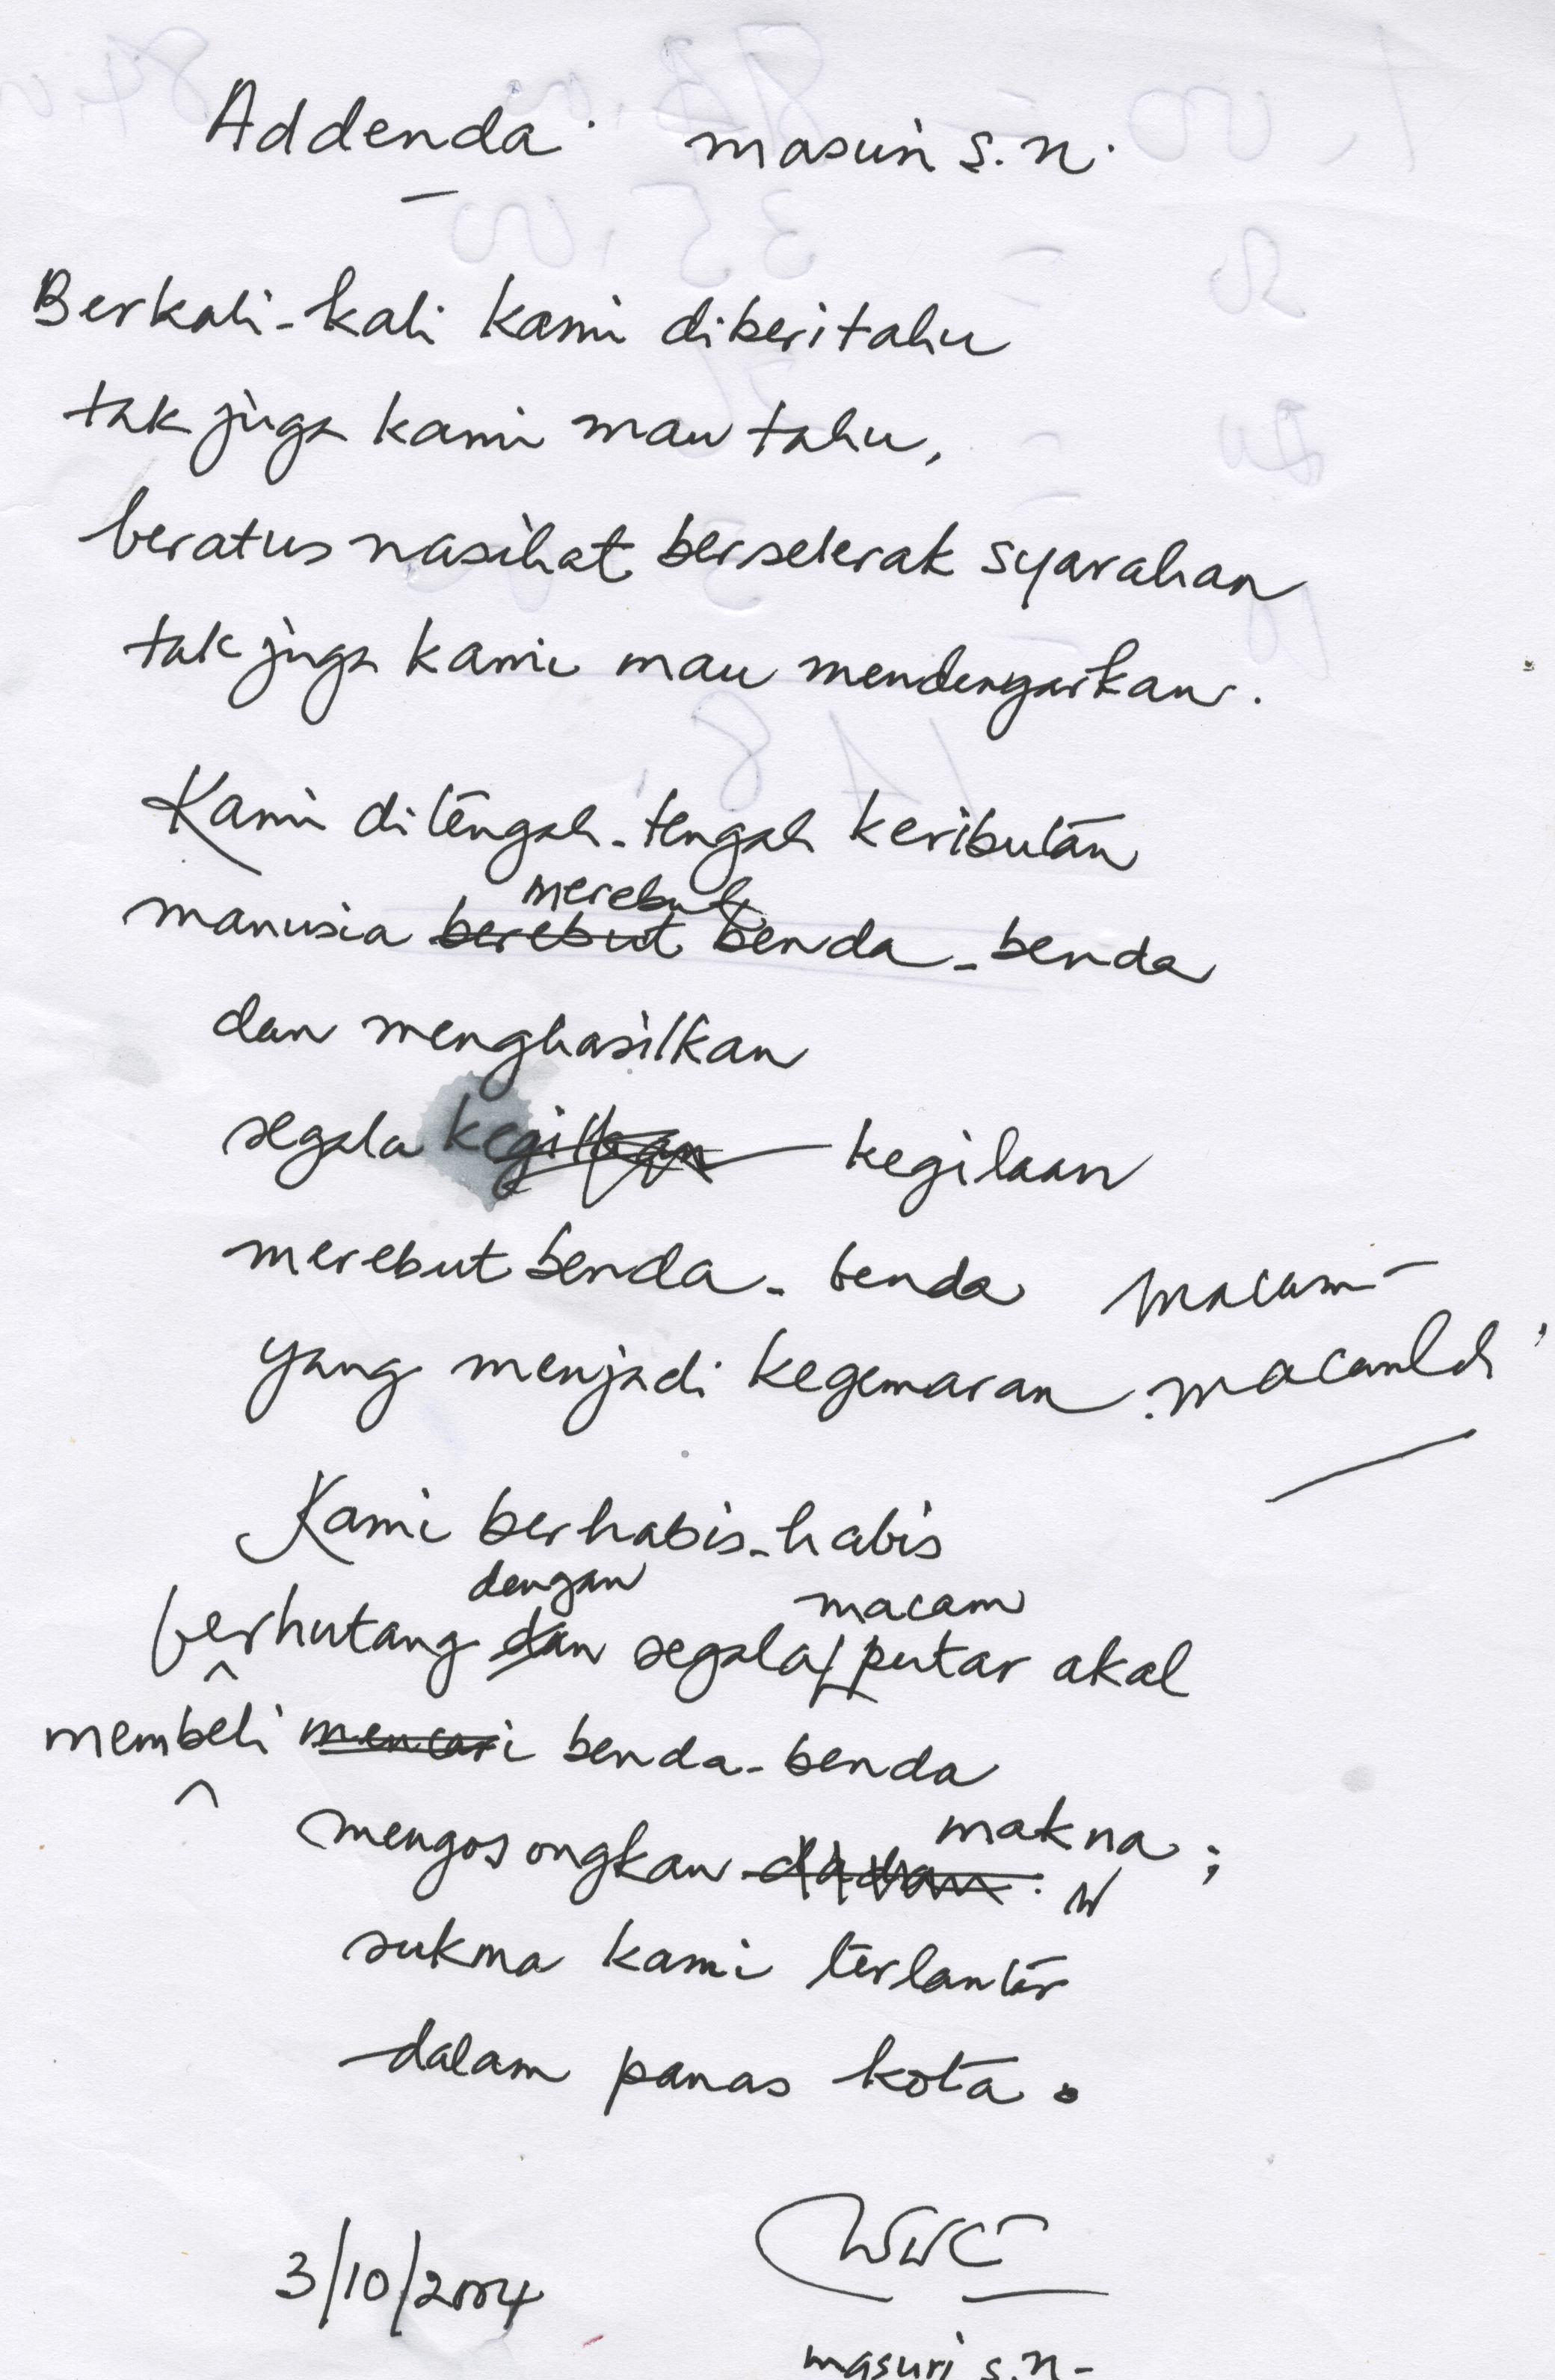 Addenda. masuri s.n.
Berkali-kali kami diberitahu
tak juga kami mau tahu,
beratus nasihat berselerak syarahan
tak juga kami mau mendengarkan.
Kami ditengah-tengah keributan
merebut
manusia berebut benda-benda
dan menghasilkan
segala kegilaan kegilaan
merebut benda-benda macam-
yang menjadi kegemaran macam
Kami berhabis-habis
dengan macam
berhutang dan segala putar akal
membeli mencari benda-benda
makna;
mengosongkan
sukma kami terlantar
dalam panas kota.
3/10/2004
masuri s.n-